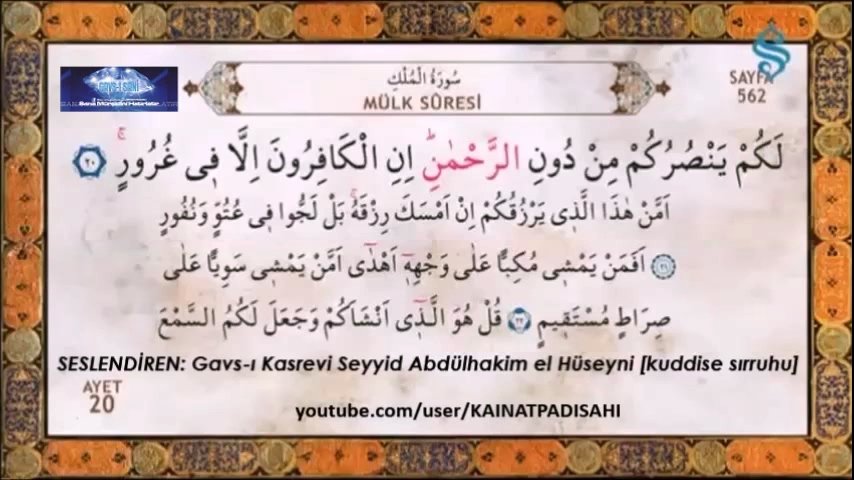 GAVS-I SANİ
سُورَةُ الْمُلْكِ
MÜLK SÛRESİ
SAYFA
562
لَكُمْ يَنْصُرُكُمْ مِنْ دُونِ الرَّحْمٰنِۜ اِنِ الْكَافِرُونَ اِلَّا ف۪ي غُرُورٍۚ ﴿٢٠﴾
اَمَّنْ هٰذَا الَّذ۪ي يَرْزُقُكُمْ اِنْ اَمْسَكَ رِزْقَهُۚ بَلْ لَجُّوا ف۪ي عُتُوٍّ وَنُفُورٍ
﴿٢١﴾ اَفَمَنْ يَمْش۪ي مُكِبًّا عَلٰى وَجْهِه۪ٓ اَهْدٰٓى اَمَّنْ يَمْش۪ي سَوِيًّا عَلٰى
صِرَاطٍ مُسْتَق۪يمٍ ﴿٢٢﴾ قُلْ هُوَ الَّذ۪ٓي اَنْشَاَكُمْ وَجَعَلَ لَكُمُ السَّمْعَ
SESLENDİREN: Gavs-ı Kasrevi Seyyid Abdülhakim el Hüseyni [kuddise sırruhu]
AYET
20
youtube.com/user/KAINATPADISAHI